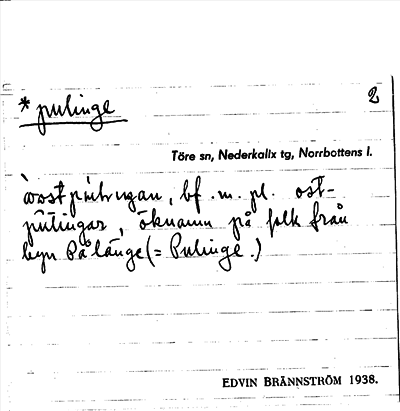 * pulinge 2
Töre sn, Nederkalix tg, Norrbottens l.
bf. m. pl. ost-
pulingar, öknamn på folk från
byn Pålänge (= Pulinge.)
EDVIN BRÄNNSTRÖM 1938.